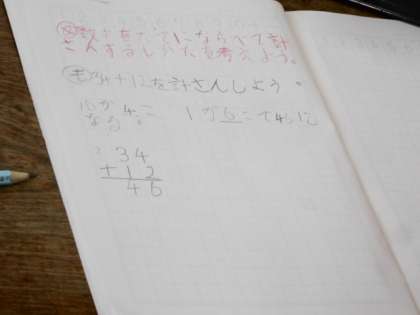 め 数字をたてにならべて計
さんするしかたを考えよう。
も 34+12を計さんしよう。
10が4こ 1が6こで46に
なる。
34
+12
46